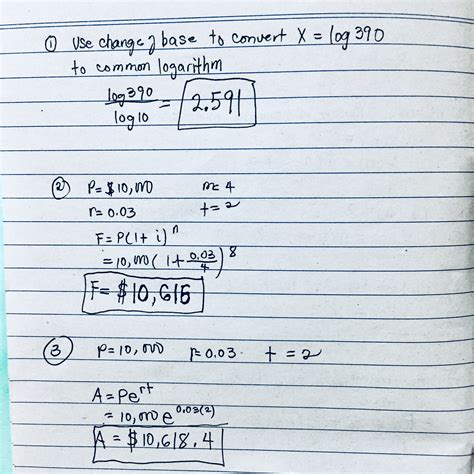 ① Use change of base to convert X = log 390
to common logarithm
log 390 / log 10 = 2.591
② P = $10,000 m = 4
r = 0.03 t = 2
F = P(1 + i)^n
= 10,000 (1 + 0.03/4)^8
F = $10,615
③ P = 10,000 r = 0.03 t = 2
A = Pe^rt
= 10,000 e^0.03(2)
A = $10,618.4